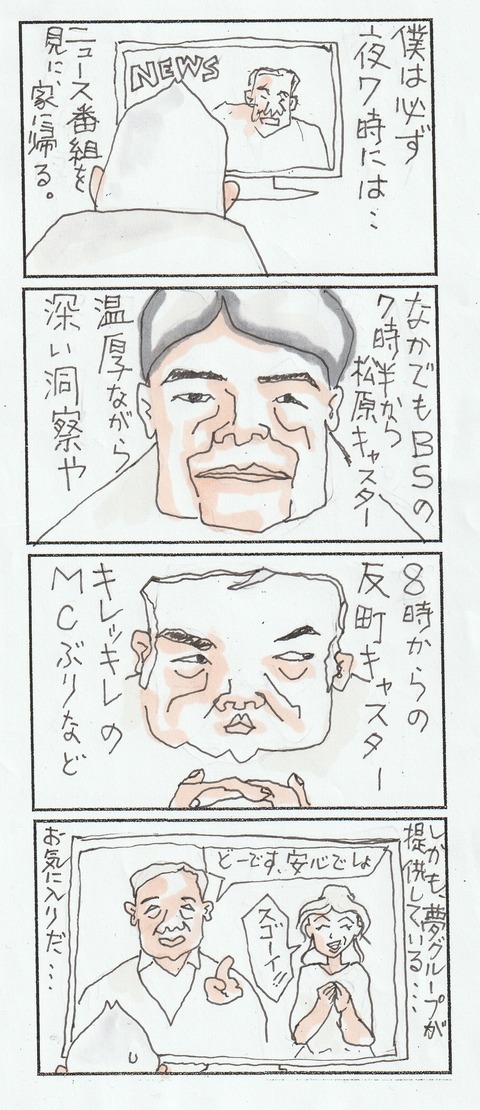 僕は必ず
夜7時には…
NEWS
ニュース番組を
見に、家に帰る。
なかでもBSの
7時半から
松原キャスター
温厚ながら
深い洞察や
8時からの
反町キャスター
キレッキレの
MCぶりなど
しかも、夢グループが
提供している…
どーです、安心でしょ
スゴーイ!!
お気に入りだ…